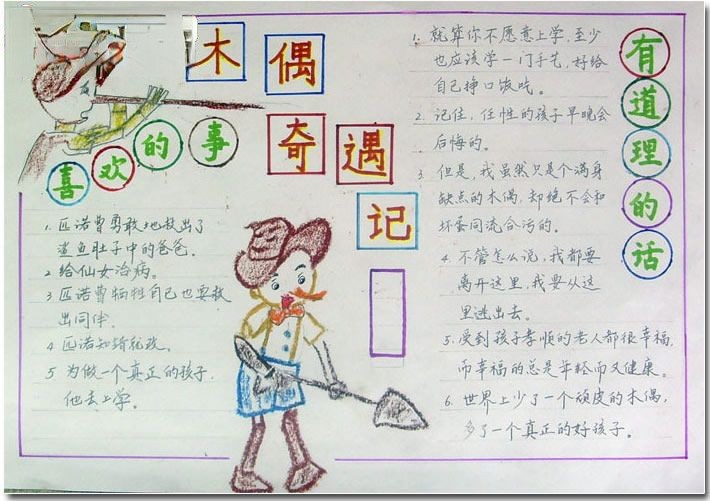 木偶
奇遇
记
喜欢的事
1. 匹诺曹勇敢地救出了
鲨鱼肚子中的爸爸。
2. 给仙女治病。
3 匹诺曹牺牲自己也要救
出同伴。
4 匹诺知错就改。
5 为做一个真正的孩子,
他去上学。
有道理的话
1. 就算你不愿意上学,至少
也应该学一门手艺,好给
自己挣口饭吃。
2. 记住,任性的孩子早晚会
后悔的。
3. 但是,我虽然只是个满身
缺点的木偶,却绝不会和
坏蛋同流合污的。
4. 不管怎么说,我都要
离开这里,我要从这
里逃出去。
5. 受到孩子孝顺的老人都很幸福,
而幸福的总是年轻而又健康。
6. 世界上少了一个顽皮的木偶,
多了一个真正的好孩子。